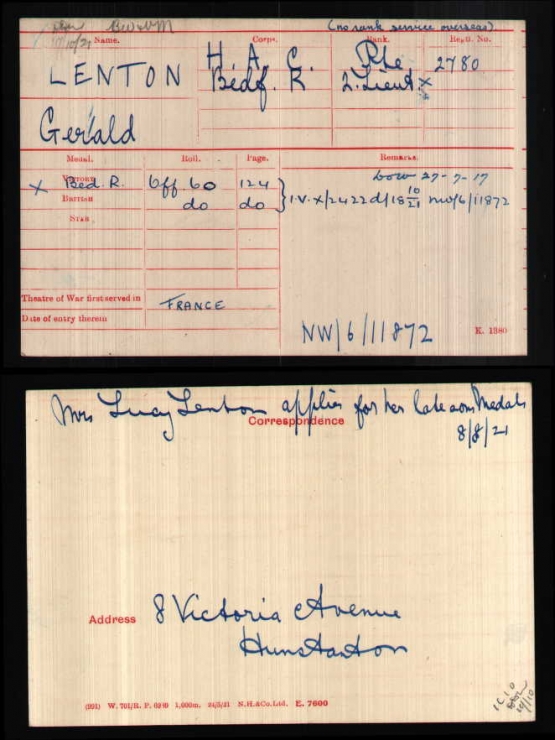 (no rank service overseas)
Name. Corps. Rank. Regtl. No.
LENTON H. A. C. Pte 2780
Bedf. R 2. Lieut. x
Gerald
Medal. Roll. Page. Remarks.
dow 27-7-17
x Victory Bed. R. Off 60 124
British do do I.V. x/2422 d/18 10/21 nw/6/11872
Star
Theatre of War first served in FRANCE
Date of entry therein
NW/6/11872 K. 1380
Mrs Lucy Lenton applies for her late son Medals
Correspondence
8/8/21
Address 8 Victoria Avenue
Hunstanton
W. 1,000m. N.H.&Co.Ltd. E. 7600